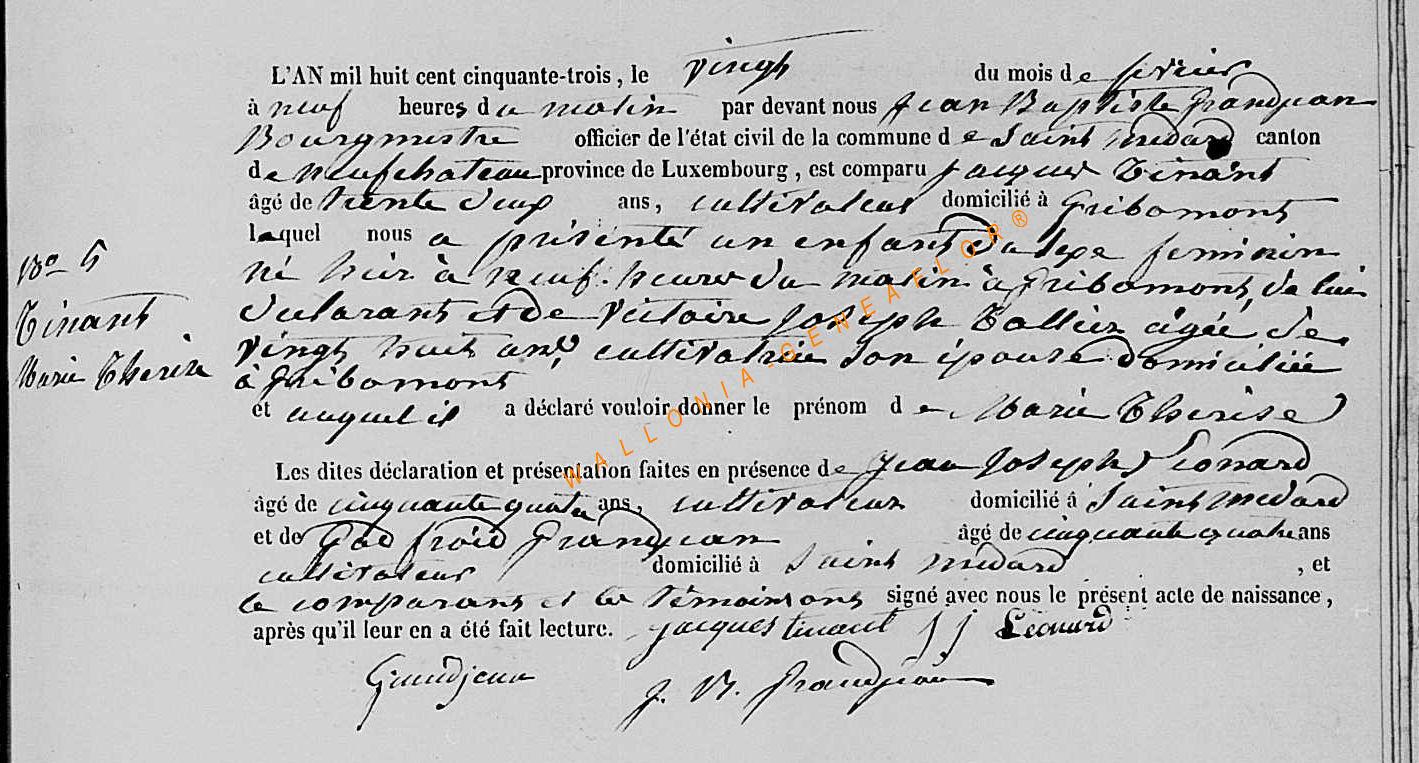 L'AN mil huit cent cinquante-trois, le vingt du mois de fevrier
à neuf heures du matin par devant nous Jean Baptiste Grandjean
Bourgmestre officier de l'état civil de la commune de Saint Medard canton
de neufchateau province de Luxembourg, est comparu Jacques Tinant
âgé de trente deux ans, cultivateur domicilié à Gribomont
laquel nous a présenté un enfant du sexe feminin
né hier à neuf heures du matin à Gribomont, de lui
N° 5
declarant et de Victoire Joseph Collier âgée de
Tinant
vingt huit ans, cultivatrice son épouse domiciliée
Marie Therese
à Gribomont
et auquel il a déclaré vouloir donner le prénom de Marie Therese
Les dites déclaration et présentation faites en présence de Jean Joseph Leonard
âgé de cinquante quatre ans, cultivateur domicilié à Saint Medard
et de God froid Grandjean âgé de cinquante quatre ans
cultivateur domicilié à Saint Medard, et
le comparant et les témoins ont signé avec nous le présent acte de naissance,
après qu'il leur en a été fait lecture. Jacques tinant J J Léonard
Grandjean J. B. Grandjean
WALLONIA-GENEAFLOR®